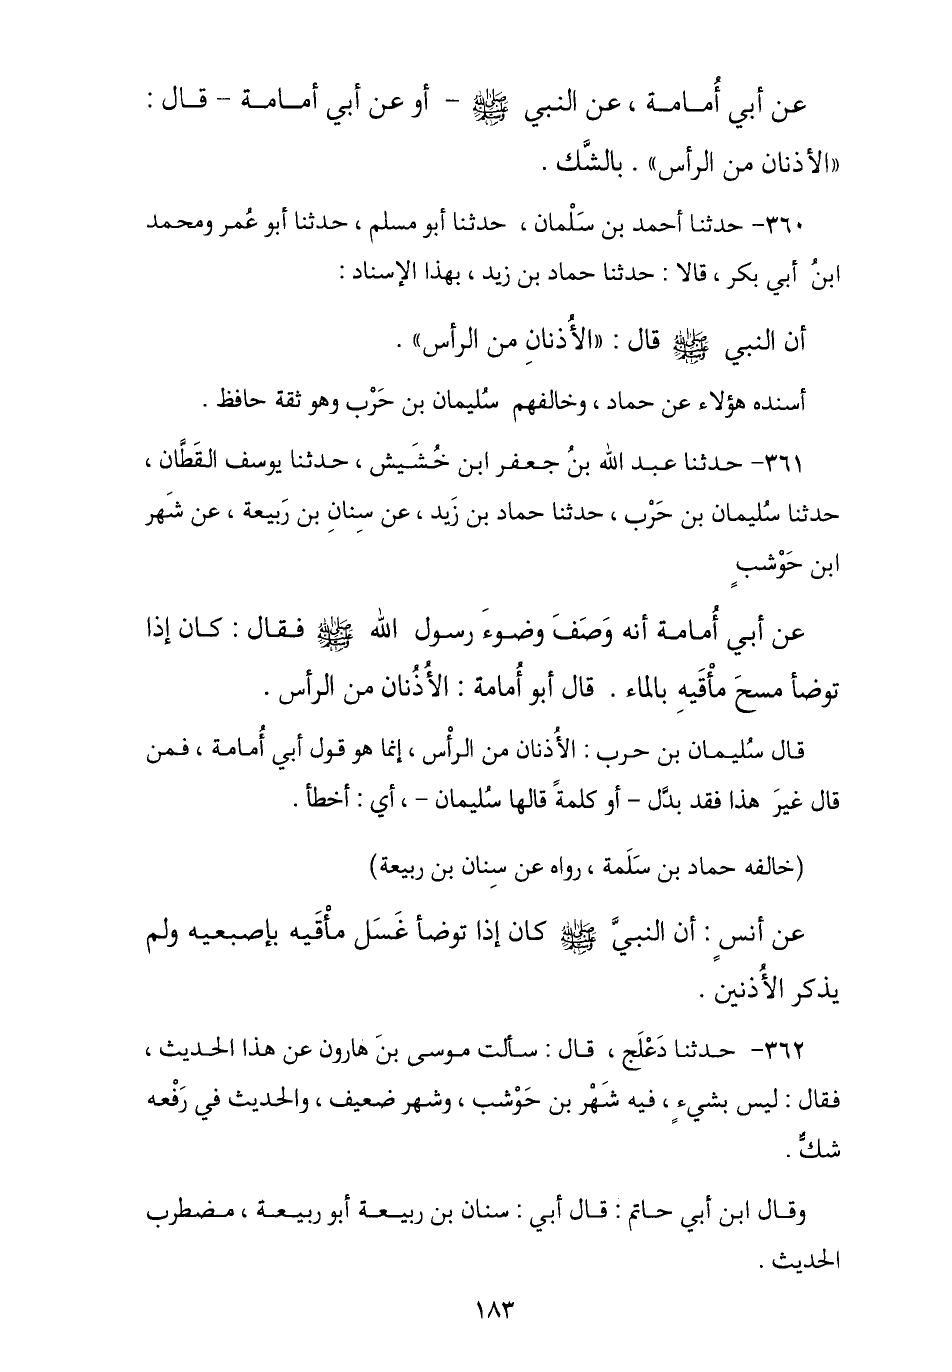 عن أبي أُمامة ، عن النبي ﷺ – أو عن أبي أمامة – قال :
«الأذنان من الرأس» . بالشَّك .
٣٦٠– حدثنا أحمد بن سَلْمان ، حدثنا أبو مسلم ، حدثنا أبو عُمر ومحمد
ابنُ أبي بكر ، قالا : حدثنا حماد بن زيد ، بهذا الإسناد :
أن النبي ﷺ قال : «الأُذنانِ من الرأس» .
أسنده هؤلاء عن حماد ، وخالفهم سُليمان بن حَرْب وهو ثقة حافظ .
٣٦١– حدثنا عبد الله بنُ جعفر ابن خُشَيش ، حدثنا يوسف القَطَّان ،
حدثنا سُليمان بن حَرْب ، حدثنا حماد بن زَيد ، عن سِنانِ بن رَبيعة ، عن شَهر
ابن حَوْشبٍ
عن أبي أُمامة أنه وَصَفَ وضوءَ رسول الله ﷺ فقال : كان إذا
توضأ مسحَ مأْقَيهِ بالماء . قال أبو أُمامة : الأُذُنان من الرأس .
قال سُليمان بن حرب : الأُذنان من الرأْس ، إنما هو قول أبي أُمامة ، فمن
قال غيرَ هذا فقد بدَّل – أو كلمةً قالها سُليمان – ، أي : أخطأ .
(خالفه حماد بن سَلَمة ، رواه عن سِنان بن ربيعة)
عن أنسٍ : أن النبيَّ ﷺ كان إذا توضأ غَسَل مأْقَيه بإصبعيه ولم
يذكر الأُذنين .
٣٦٢– حدثنا دَعْلَج ، قال : سألت موسى بنَ هارون عن هذا الحديث ،
فقال : ليس بشيءٍ ، فيه شَهْر بن حَوْشب ، وشهر ضعيف ، والحديث في رَفْعه
شكٌّ .
وقال ابن أبي حاتم : قال أبي : سنان بن ربيعة أبو ربيعة ، مضطرب
الحديث .
١٨٣